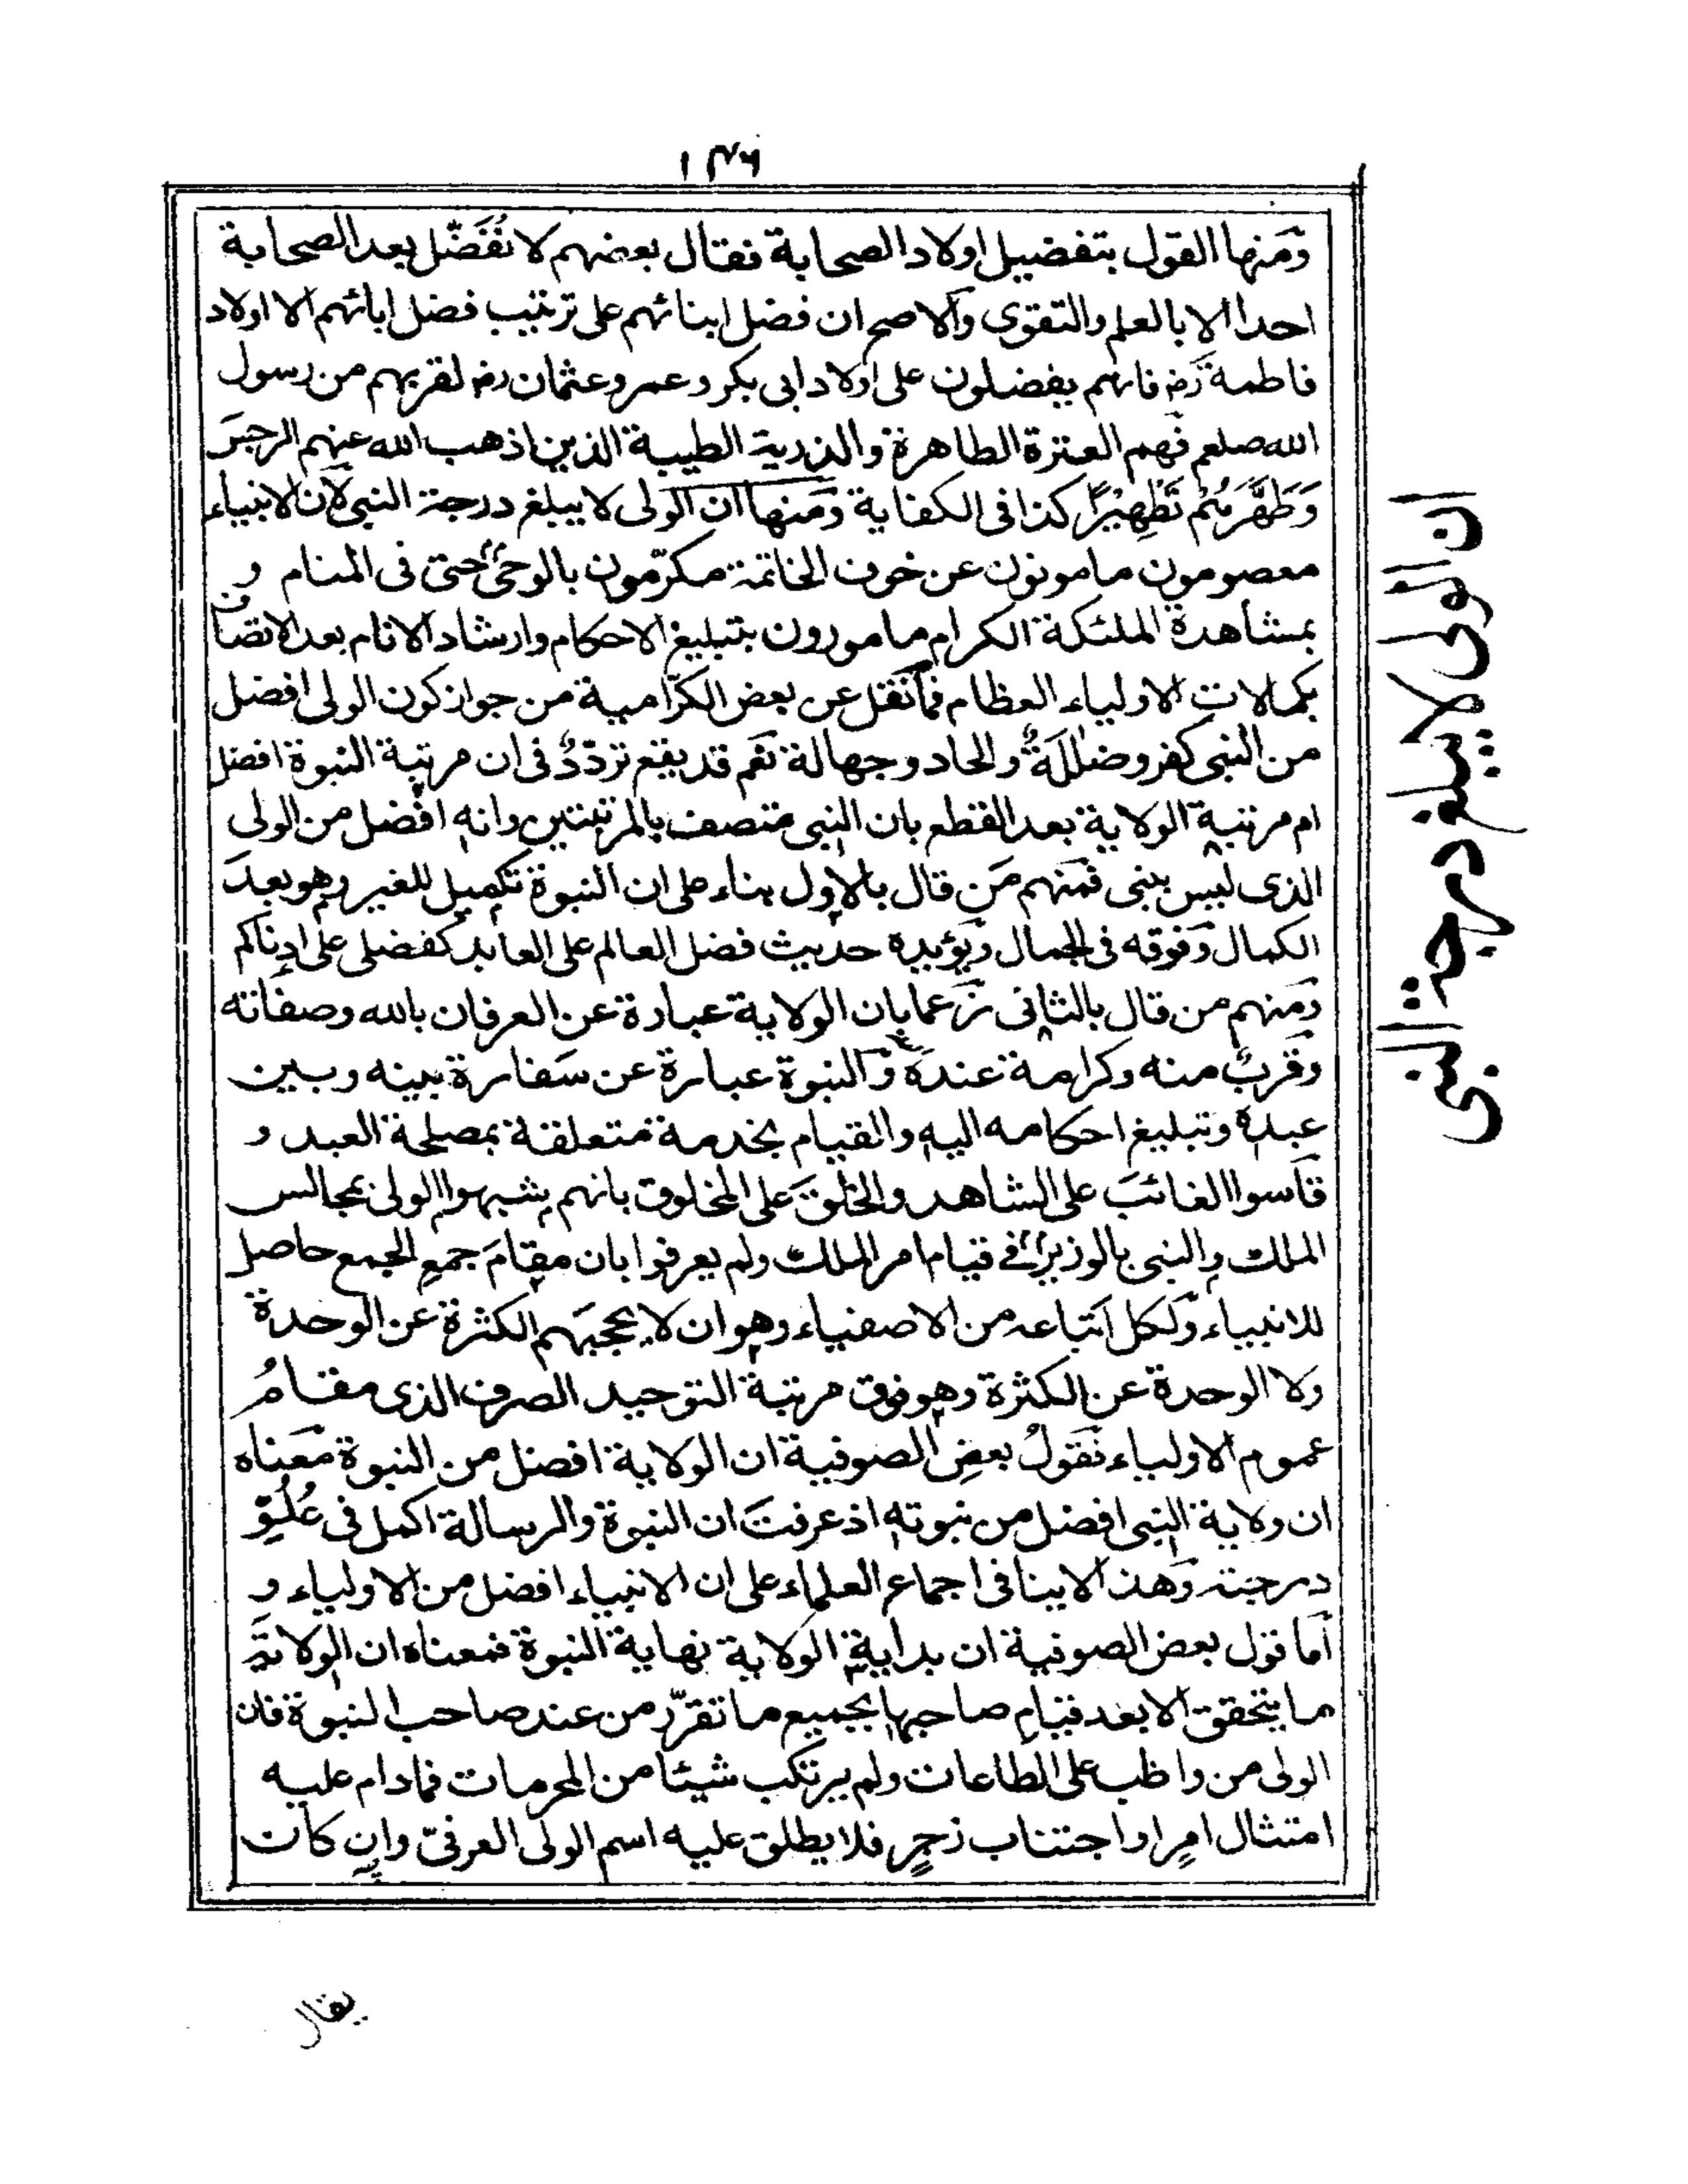 ١٤٦
ومنها القول بتفضيل اولاد الصحابة فقال بعضهم لا نُفَضِّل بعد الصحابة
احدا الا بالعلم والتقوى والاصح ان فضل ابنائهم على ترتيب فضل ابائهم الا اولاد
فاطمة رض فانهم يفضلون على اولاد ابى بكر وعمر وعثمان رض لقربهم من رسول
الله صلعم فهم العترة الطاهرة والذرية الطيبة الذين اذهب الله عنهم الرجسَ
وَطَهَّرَهُمْ تَطْهِيْرًا كذا فى الكفاية ومنها ان الولى لا يبلغ درجة النبى لان الانبياء
معصومون مامونون عن خوف الخاتمة مكرّمون بالوحى حتى فى المنام و
بمشاهدة الملئكة الكرام مامورون بتبليغ الاحكام وارشاد الانام بعد الاتصاف
بكمالات الاولياء العظام فما نقل عن بعض الكرّامية من جواز كون الولى افضل
من النبى كفر وضلالة والحاد وجهالة نعم قد يقع تردّدٌ فى ان مرتبة النبوة افضل
ام مرتبة الولاية بعد القطع بان النبى متصف بالمرتبتين وانه افضل من الولى
الذى ليس بنبى فمنهم مَن قال بالاول بناء على ان النبوة تكميل للغير وهو بعدَ
الكمال وفوقه فى الجمال ويؤيده حديث فضل العالم على العابد كفضلى على ادناكم
ومنهم من قال بالثانى زعما بان الولاية عبارة عن العرفان بالله وصفاته
وقربٌ منه وكرامة عنده والنبوة عبارة عن سَفارة بينه وبين
عبده وتبليغ احكامه اليه والقيام بخدمة متعلقة بمصلحة العبد و
قاسوا الغائبَ على الشاهد والخالقَ على المخلوق بانهم يشبهوا الولى بمجالس
الملك والنبى بالوزير فى قيام امر الملك ولم يعرفوا بان مقامَ جمعِ الجمع حاصل
للانبياء ولكل اتباعه من الاصفياء وهو ان لا يحجبهم الكثرة عن الوحدة
ولا الوحدة عن الكثرة وهو فوق مرتبة التوحيد الصرف الذى مقامُ
عموم الاولياء فقولُ بعضِ الصوفية ان الولاية افضل من النبوة معناه
ان ولاية النبى افضل من نبوته اذ عرفتَ ان النبوة والرسالة اكمل فى عُلُوّ
درجته وهذا لا ينافى اجماع العلماء على ان الانبياء افضل من الاولياء و
اما قول بعض الصوفية ان بداية الولاية نهاية النبوة فمعناه ان الولايةَ
ما يتحقق الا بعد قيامِ صاحبها بجميع ما تقرّر من عند صاحب النبوة فان
الولى من واظب على الطاعات ولم يرتكب شيئا من المحرمات فما دام عليه
امتثال امرٍ او اجتناب زجرٍ فلا يطلق عليه اسم الولى العرفىّ وان كان
يقال
ان الولى لا يبلغ درجة النبى